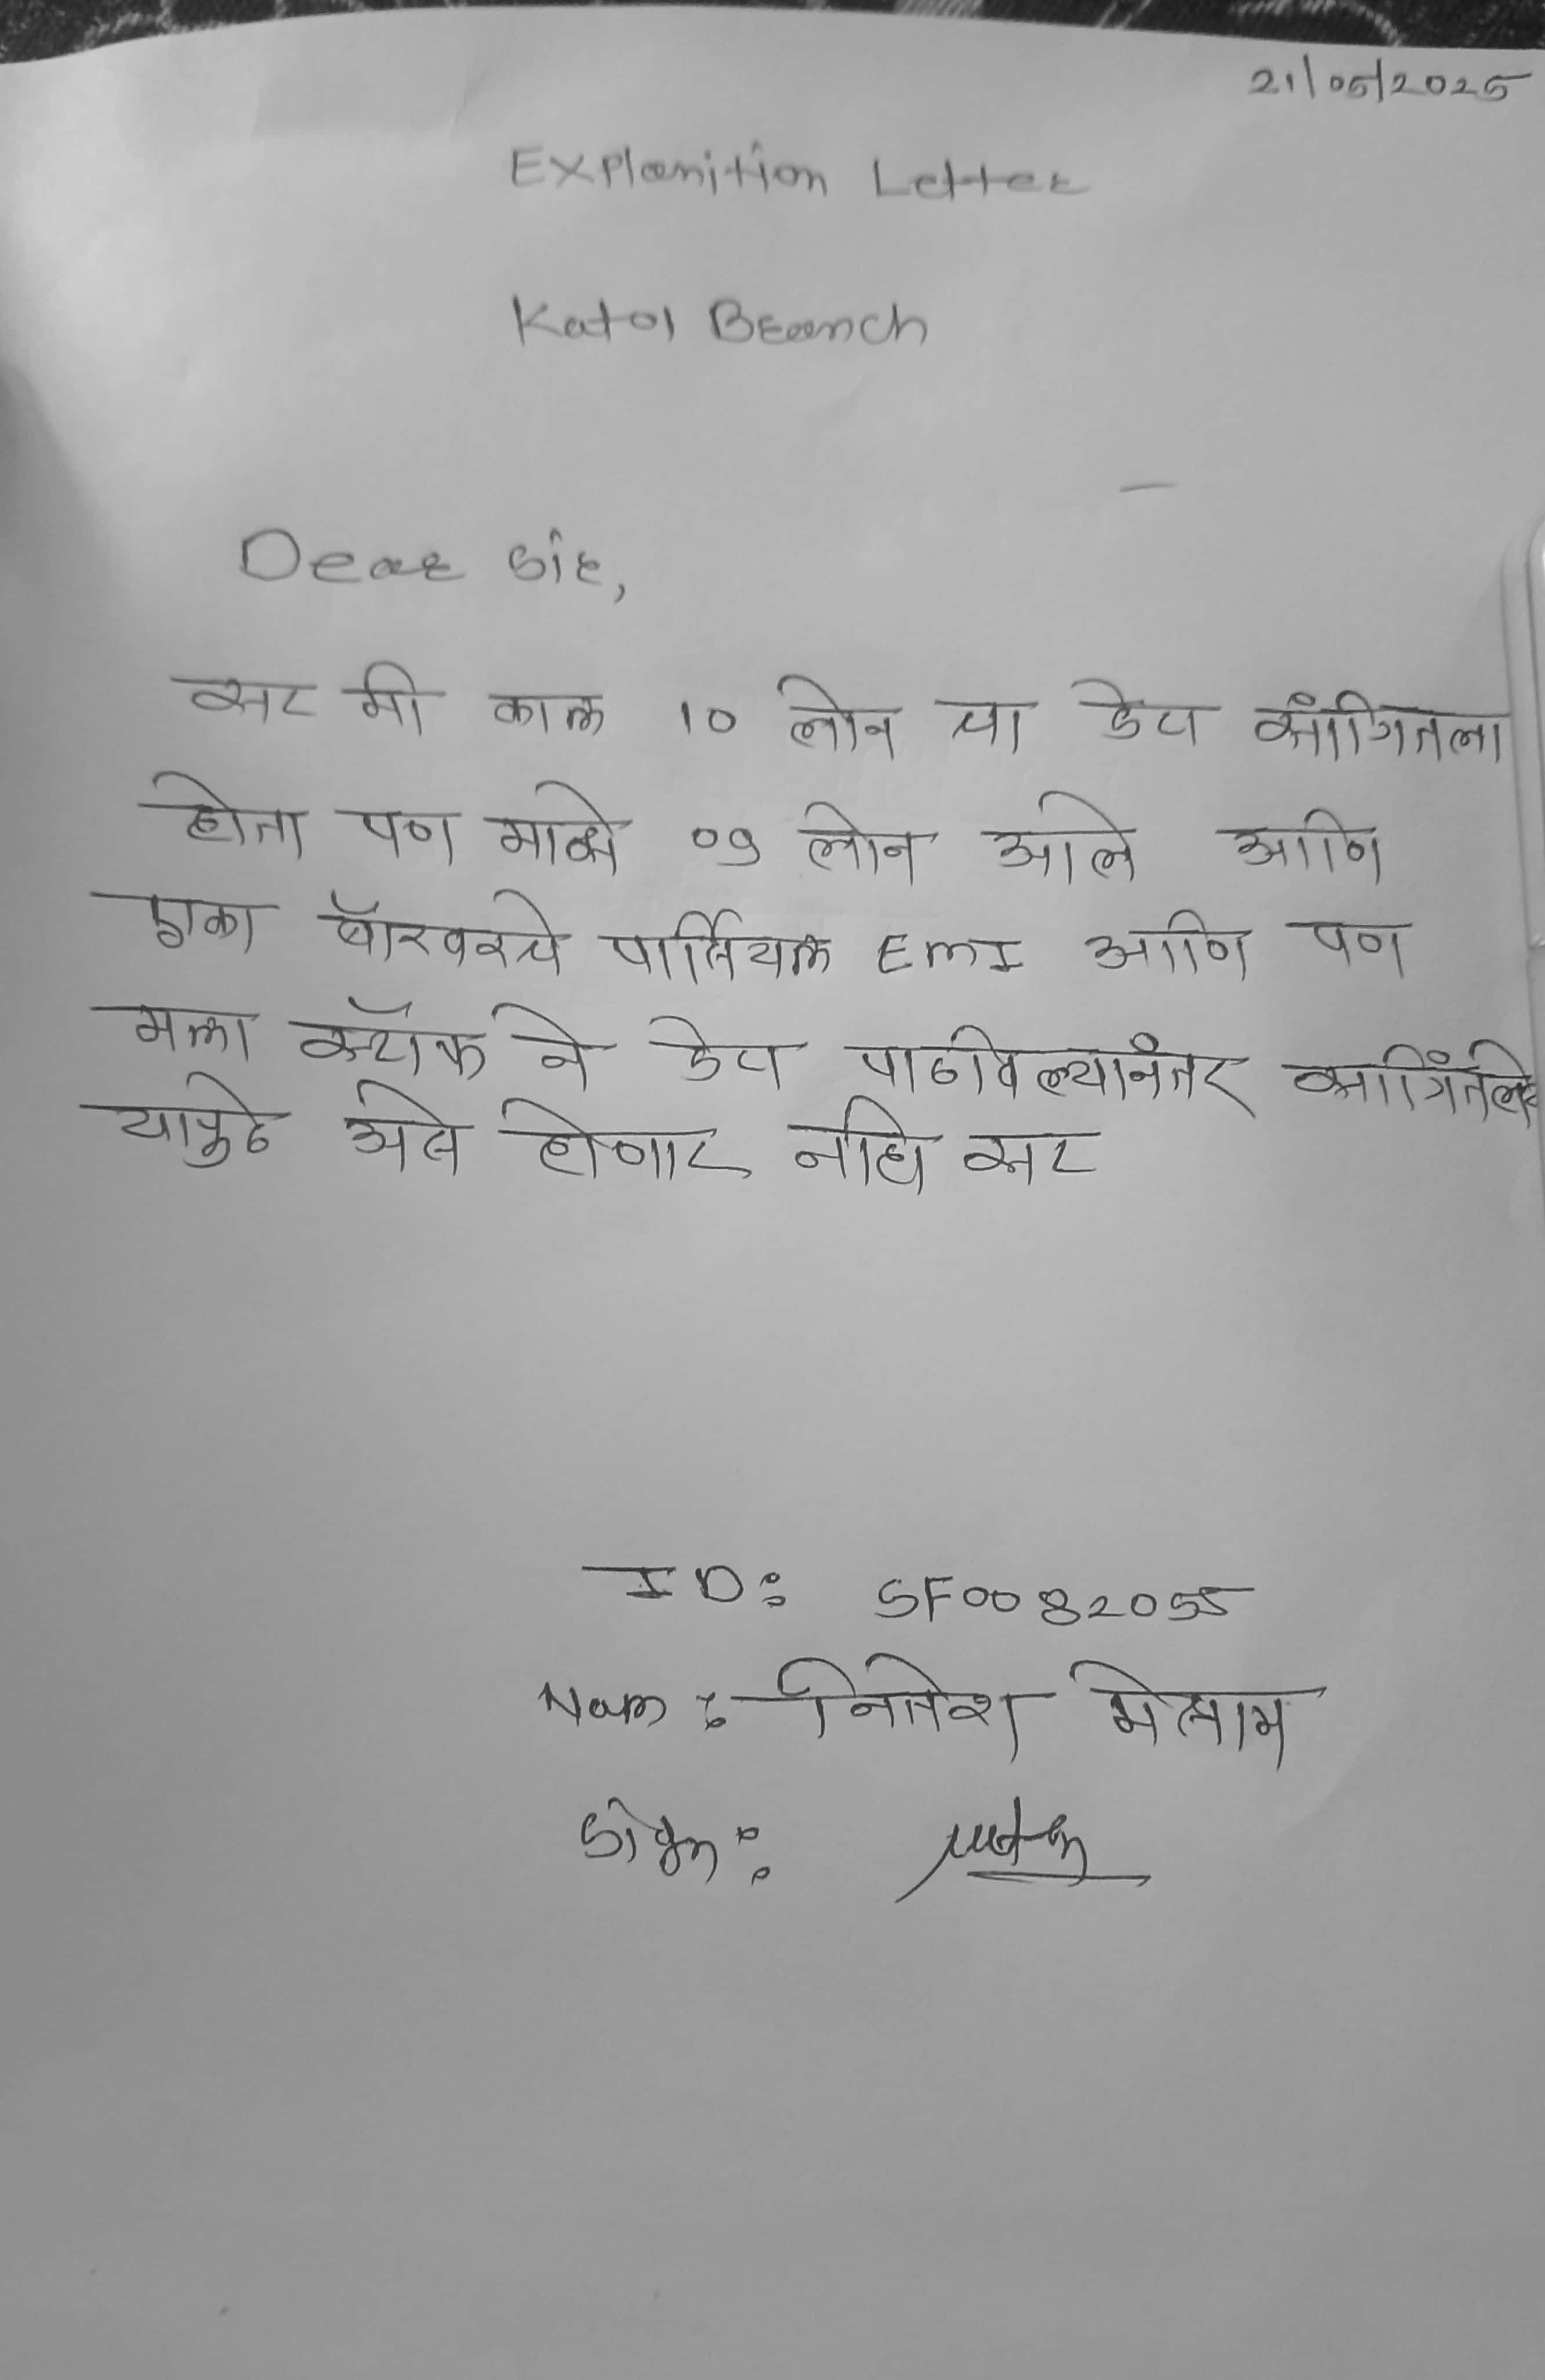 21/05/2025
Explanition Letter
Katol Branch
Dear Sir,
सर मी काल 10 लोन चा डेटा सांगितला
होता पण माझे 09 लोन आले आणि
एका बॉरवरचे पार्सियल EMI आणि पण
मला स्टॉफ ने डेटा पाठविल्यानंतर सांगितले
यापुढे असे होणार नाही सर
ID: SF0082055
Nam : नितेश मेश्राम
Sign: